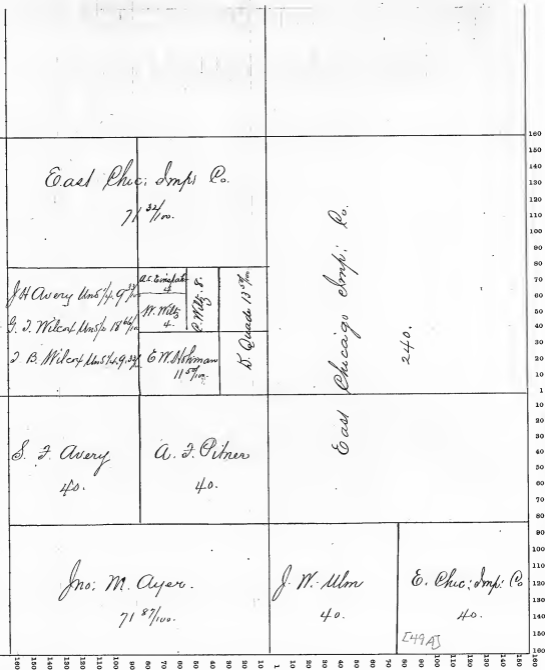 East Chic; Imp; Co.
71 32/100.
J H Avery Und 1/4. 9 33/100
G. T. Wilcox Und 1/2 18 66/100
T B. Wilcox Und 1/4. 9. 33/100
4.
W. Wiltz
4.
P. Wiltz. 8.
D. Quade 13 50/100
E W. Hohman
11 50/100.
East Chicago Imp; Co.
240.
S. F. Avery
40.
A. F. Pitner
40.
Jno; M. Ayer.
71 87/100.
J. W. Ulm
40.
E. Chic; Imp; Co
40.
[49A]
160
150
140
130
120
110
100
90
80
70
60
50
40
30
20
10
1
10
20
30
40
50
60
70
80
90
100
110
120
130
140
150
160
160 150 140 130 120 110 100 90 80 70 60 50 40 30 20 10 1 10 20 30 40 50 60 70 80 90 100 110 120 130 140 150 160